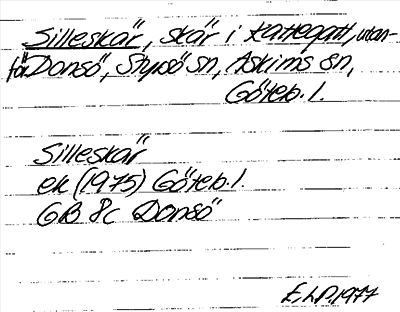 Silleskär, skär i Kattegatt, utan-
för Donsö, Styrsö sn, Askims sn,
Göteb. l.
Silleskär
ek (1975) Göteb. l.
GB 8c Donsö
E.L.P. 1977